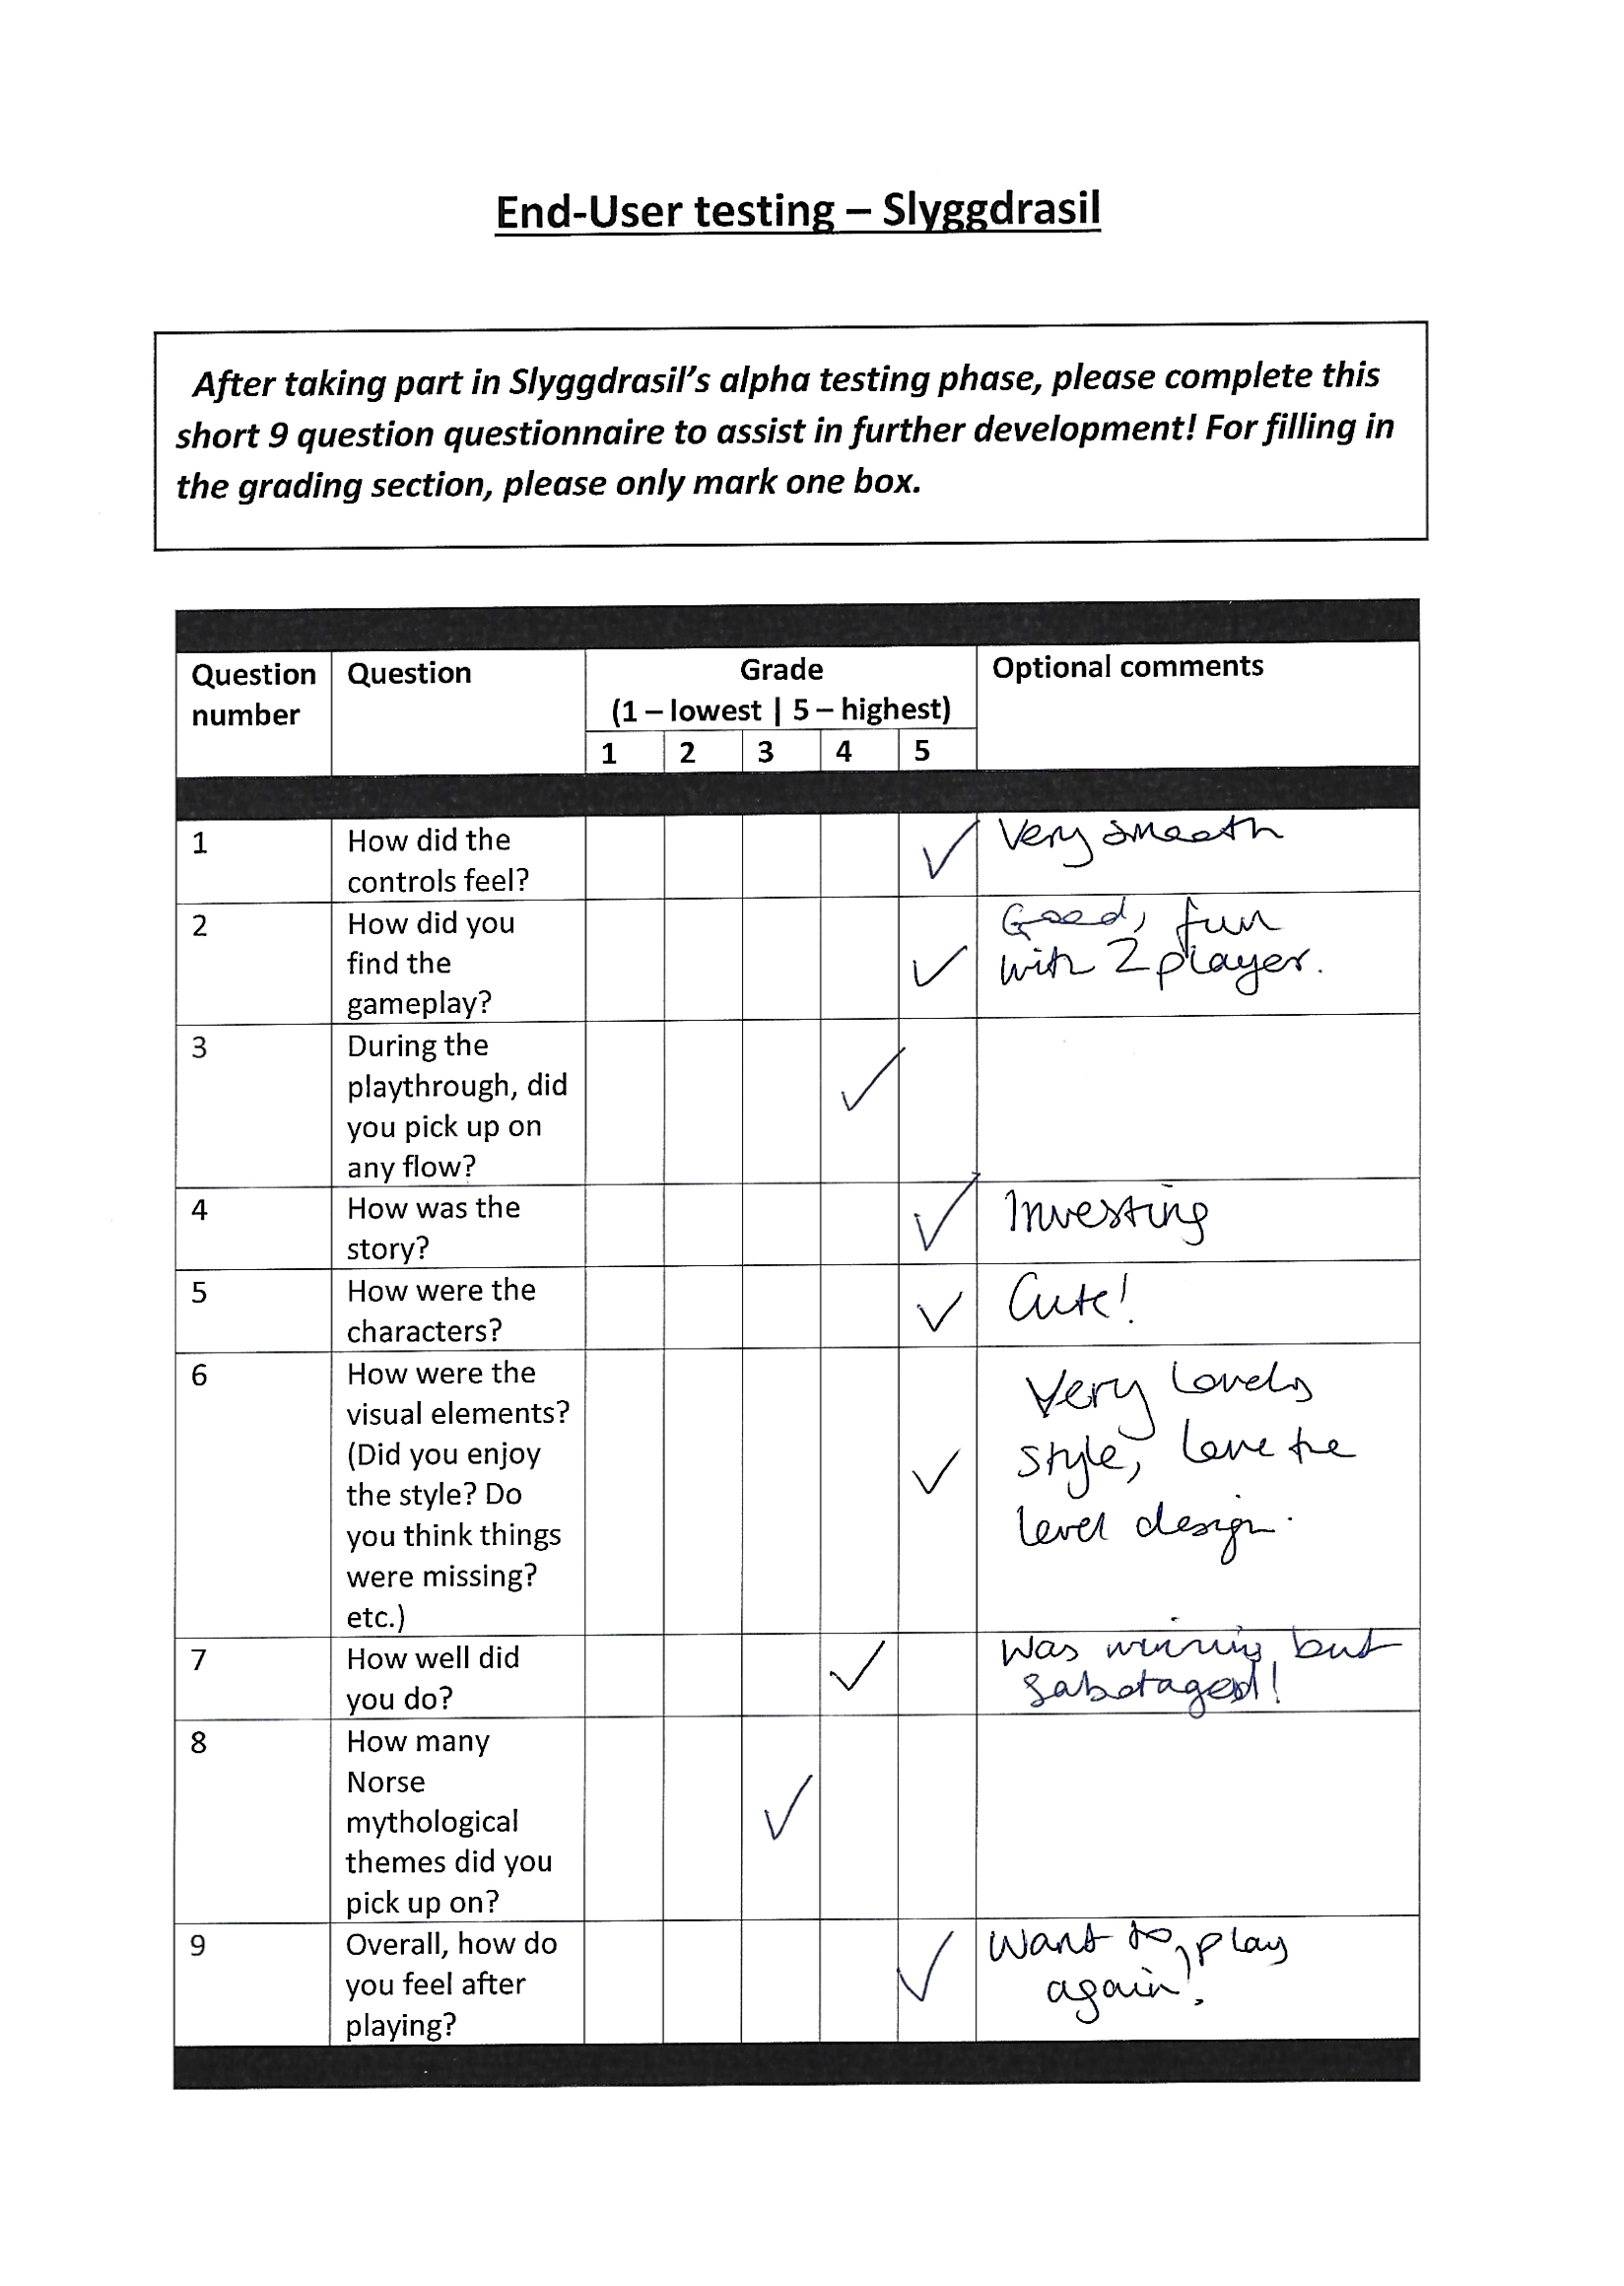 End-User testing – Slyggdrasil
After taking part in Slyggdrasil's alpha testing phase, please complete this
short 9 question questionnaire to assist in further development! For filling in
the grading section, please only mark one box.
Question number
Question
Grade
(1 – lowest | 5 – highest)
Optional comments
1 2 3 4 5
1
How did the
controls feel?
✓
Very smooth
2
How did you
find the
gameplay?
✓
Good, fun
with 2 player.
3
During the
playthrough, did
you pick up on
any flow?
✓
4
How was the
story?
✓
Investing
5
How were the
characters?
✓
Cute!
6
How were the
visual elements?
(Did you enjoy
the style? Do
you think things
were missing?
etc.)
✓
Very lovely
style, love the
level design.
7
How well did
you do?
✓
Was winning, but
sabotaged!
8
How many
Norse
mythological
themes did you
pick up on?
✓
9
Overall, how do
you feel after
playing?
✓
Want to play
again!